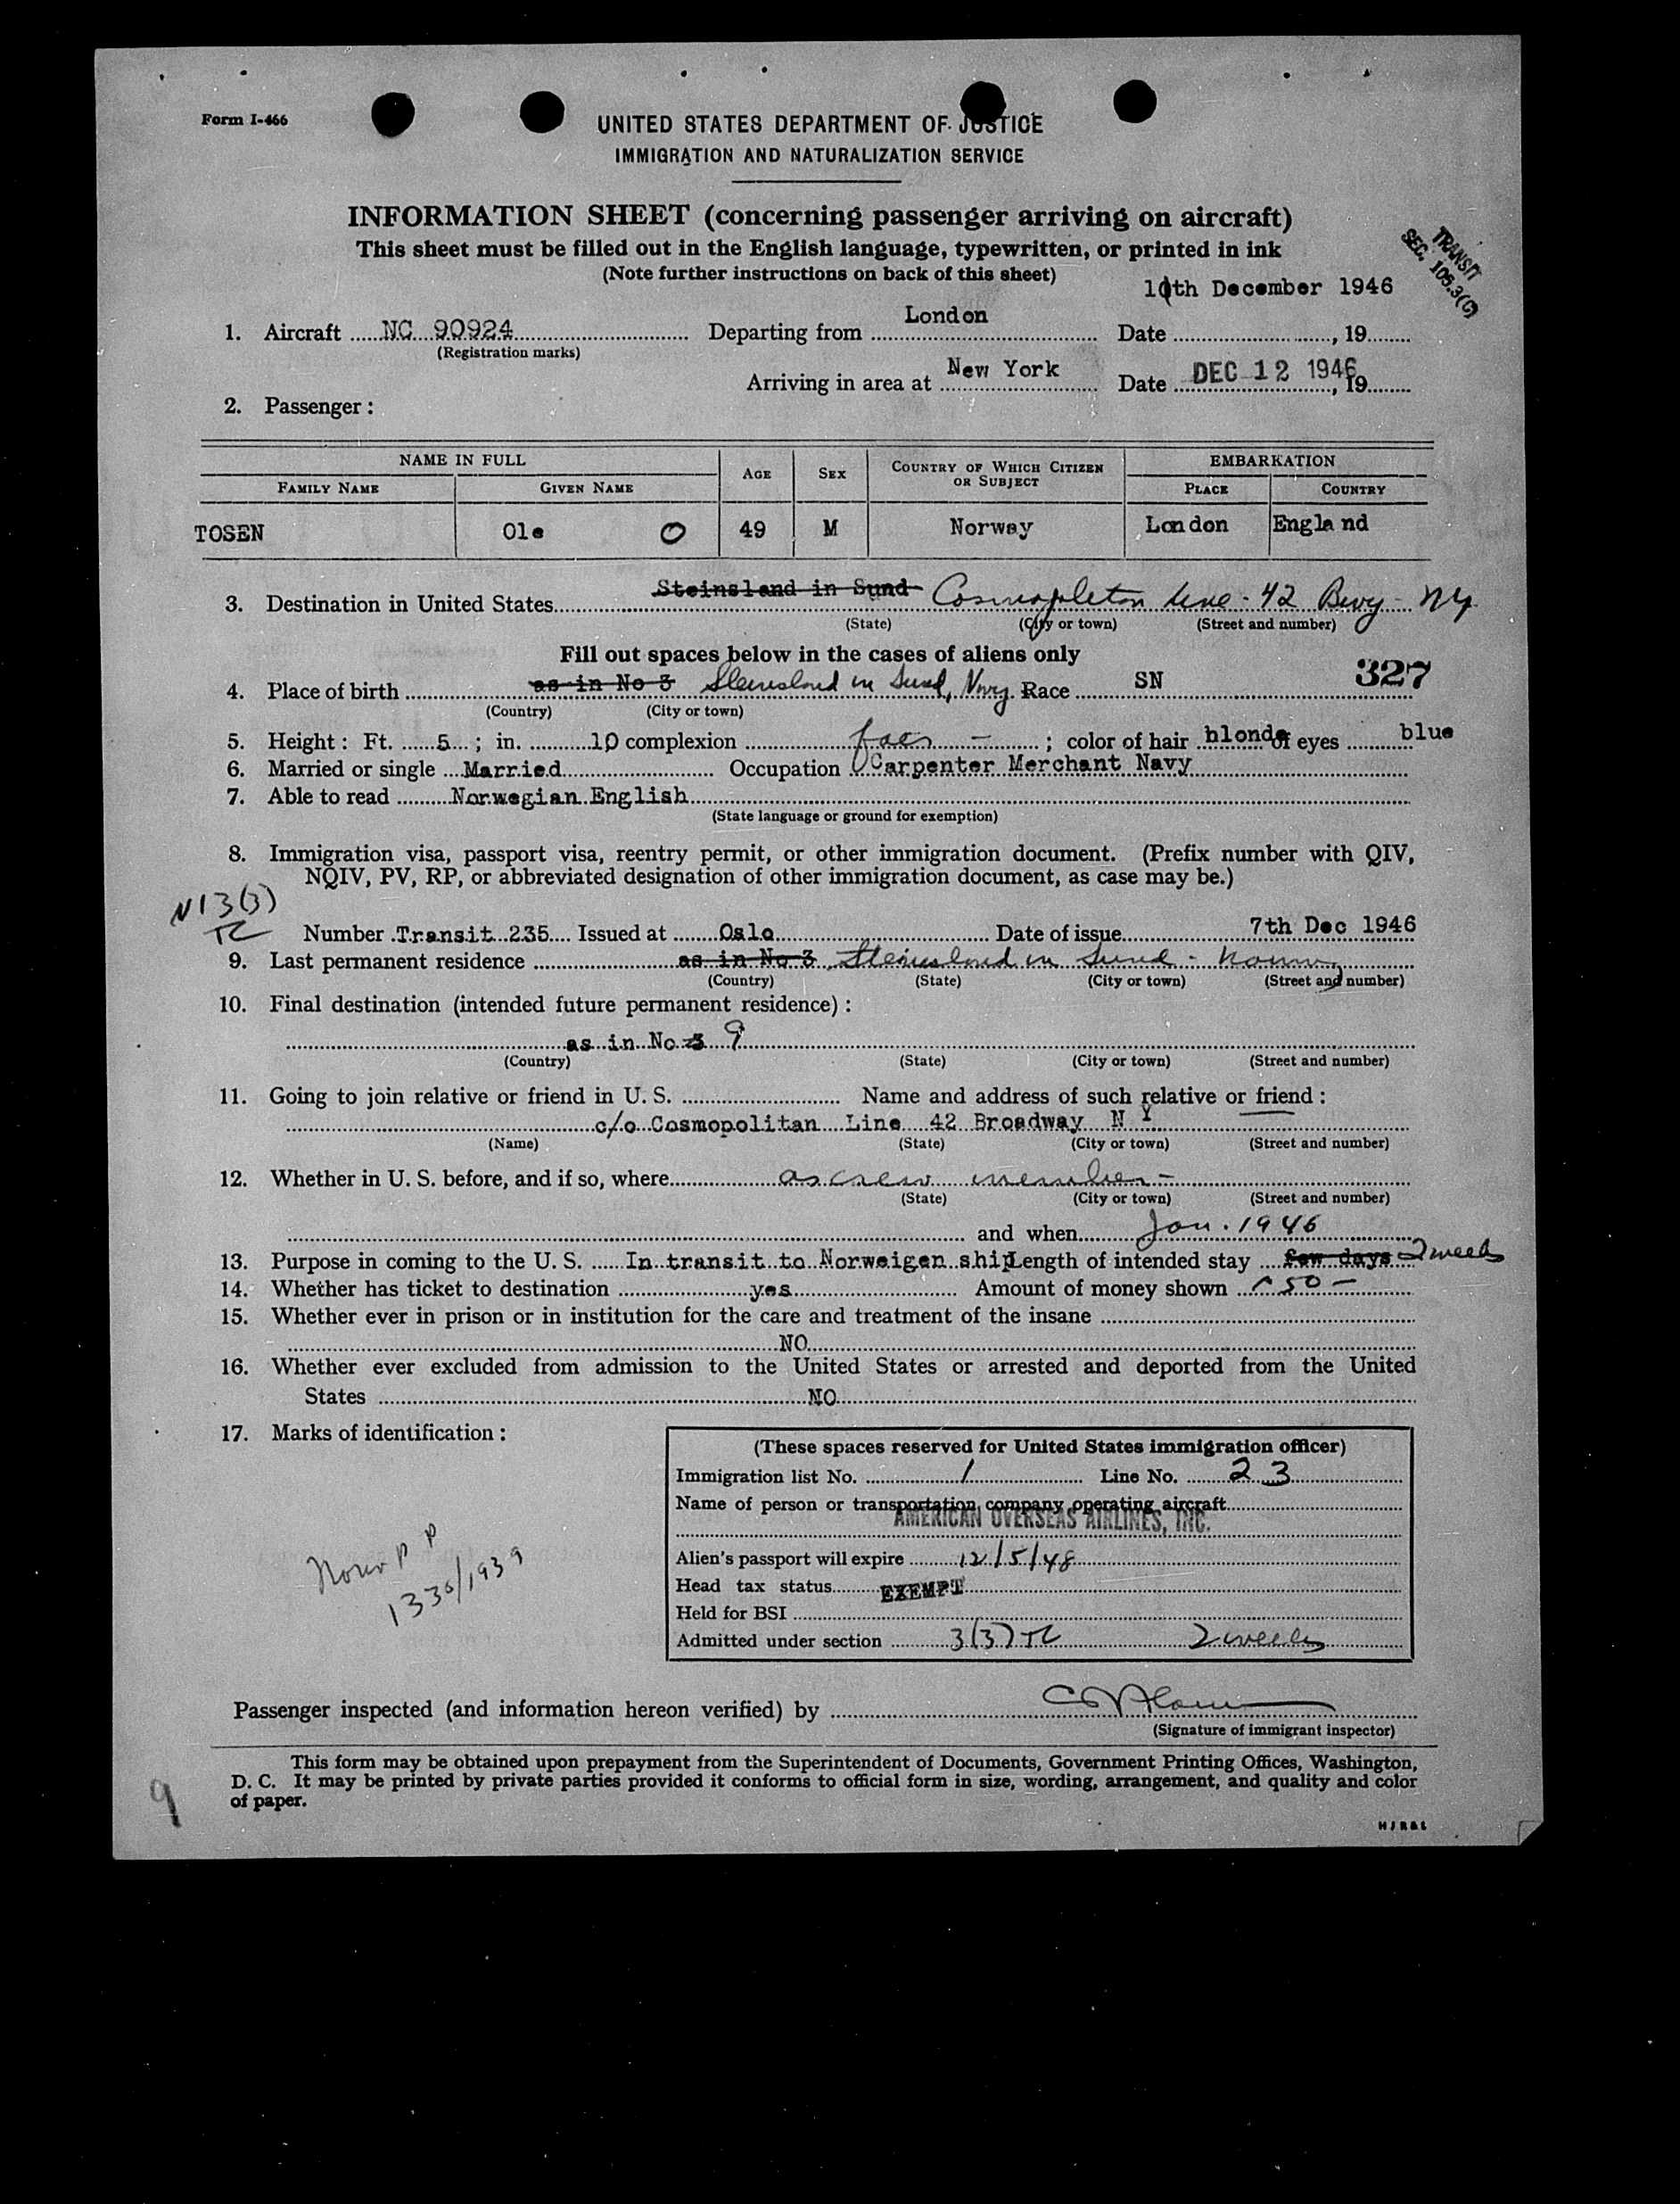 Form I-466
UNITED STATES DEPARTMENT OF JUSTICE
IMMIGRATION AND NATURALIZATION SERVICE
INFORMATION SHEET (concerning passenger arriving on aircraft)
This sheet must be filled out in the English language, typewritten, or printed in ink
(Note further instructions on back of this sheet)
TRANSIT
SEC. 105.3(C)
December 1946
1. Aircraft NC 90924 Departing from London Date , 19
(Registration marks)
Arriving in area at New York Date DEC 12 1946, 19
2. Passenger:
NAME IN FULL AGE SEX COUNTRY OF WHICH CITIZEN OR SUBJECT EMBARKATION
FAMILY NAME GIVEN NAME PLACE COUNTRY
TOSEN Ole O 49 M Norway London England
3. Destination in United States Steinsland in Sund Cosmopleton Line - 42 Bwy - NY.
(State) (City or town) (Street and number)
Fill out spaces below in the cases of aliens only
327
4. Place of birth as in No 3 Steinsland in Sund, Norg. Race SN
(Country) (City or town)
5. Height: Ft. 5; in. 10 complexion ; color of hair blonde eyes blue
6. Married or single Married Occupation Carpenter Merchant Navy
7. Able to read Norwegian English
(State language or ground for exemption)
8. Immigration visa, passport visa, reentry permit, or other immigration document. (Prefix number with QIV,
NQIV, PV, RP, or abbreviated designation of other immigration document, as case may be.)
Number Transit 235 Issued at Oslo Date of issue 7th Dec 1946
9. Last permanent residence as in No 3 Steinsland in Sund - Norway
(Country) (State) (City or town) (Street and number)
10. Final destination (intended future permanent residence):
as in No 3 9
(Country) (State) (City or town) (Street and number)
11. Going to join relative or friend in U. S. Name and address of such relative or friend:
c/o Cosmopolitan Line 42 Broadway N Y
(Name) (State) (City or town) (Street and number)
12. Whether in U. S. before, and if so, where as crew member -
(State) (City or town) (Street and number)
and when Jan. 1946
13. Purpose in coming to the U. S. In transit to Norweigen ship Length of intended stay few days 2 weeks
14. Whether has ticket to destination yes Amount of money shown 50 -
15. Whether ever in prison or in institution for the care and treatment of the insane
NO
16. Whether ever excluded from admission to the United States or arrested and deported from the United
States NO
17. Marks of identification:
(These spaces reserved for United States immigration officer)
Immigration list No. 1 Line No. 23
Name of person or transportation company operating aircraft
AMERICAN OVERSEAS AIRLINES, INC.
Alien's passport will expire 12/5/48
Head tax status EXEMPT
Held for BSI
Admitted under section 3(3) TC 2 weeks
Passenger inspected (and information hereon verified) by
(Signature of immigrant inspector)
This form may be obtained upon prepayment from the Superintendent of Documents, Government Printing Offices, Washington,
D. C. It may be printed by private parties provided it conforms to official form in size, wording, arrangement, and quality and color
of paper.
9